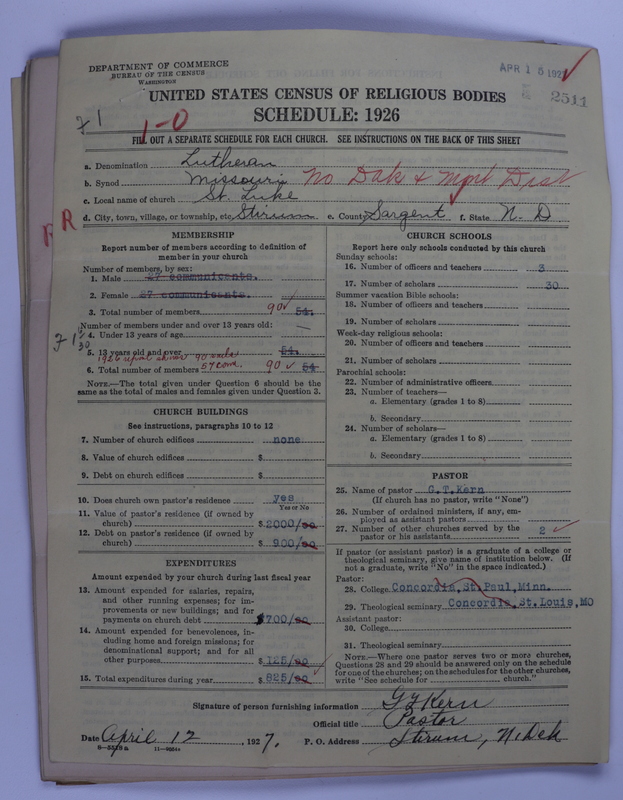 DEPARTMENT OF COMMERCE
BUREAU OF THE CENSUS
WASHINGTON
APR 15 1927
2511
UNITED STATES CENSUS OF RELIGIOUS BODIES
SCHEDULE: 1926
71
1-0
FILL OUT A SEPARATE SCHEDULE FOR EACH CHURCH. SEE INSTRUCTIONS ON THE BACK OF THIS SHEET
a. Denomination Lutheran
b. Synod Missouri No Dak & Mont Dist
c. Local name of church St. Luke
d. City, town, village, or township, etc. Stirum e. County Sargent f. State N. D
R R
MEMBERSHIP
Report number of members according to definition of
member in your church
Number of members, by sex:
1. Male 27 communicants.
2. Female 27 communicants.
3. Total number of members 90 54.
Number of members under and over 13 years old:
4. Under 13 years of age
5. 13 years old and over 54.
6. Total number of members 57 com. 90 54
NOTE.—The total given under Question 6 should be the
same as the total of males and females given under Question 3.
CHURCH BUILDINGS
See instructions, paragraphs 10 to 12
7. Number of church edifices none.
8. Value of church edifices $
9. Debt on church edifices $
10. Does church own pastor's residence yes
Yes or No
11. Value of pastor's residence (if owned by
church) $ 2000/00
12. Debt on pastor's residence (if owned by
church) $ 900/00
EXPENDITURES
Amount expended by your church during last fiscal year
13. Amount expended for salaries, repairs,
and other running expenses; for im-
provements or new buildings; and for
payments on church debt $700/00
14. Amount expended for benevolences, in-
cluding home and foreign missions; for
denominational support; and for all
other purposes $ 125/00
15. Total expenditures during year $ 825/00
CHURCH SCHOOLS
Report here only schools conducted by this church
Sunday schools:
16. Number of officers and teachers 3
17. Number of scholars 30
Summer vacation Bible schools:
18. Number of officers and teachers
19. Number of scholars
Week-day religious schools:
20. Number of officers and teachers
21. Number of scholars
Parochial schools:
22. Number of administrative officers
23. Number of teachers—
a. Elementary (grades 1 to 8)
b. Secondary
24. Number of scholars—
a. Elementary (grades 1 to 8)
b. Secondary
PASTOR
25. Name of pastor G.T.Kern
(If church has no pastor, write "None")
26. Number of ordained ministers, if any, em-
ployed as assistant pastors
27. Number of other churches served by the
pastor or his assistants 2
If pastor (or assistant pastor) is a graduate of a college or
theological seminary, give name of institution below. (If
not a graduate, write "No" in the space indicated.)
Pastor:
28. College Concordia, St.Paul, Minn.
29. Theological seminary Concordia, St.Louis, MO
Assistant pastor:
30. College
31. Theological seminary
NOTE.—Where one pastor serves two or more churches,
Questions 28 and 29 should be answered only on the schedule
for one of the churches; on the schedules for the other churches,
write "See schedule for church."
Signature of person furnishing information G T Kern
Official title Pastor
Date April 12, 1927. P. O. Address Stirum, N. Dak